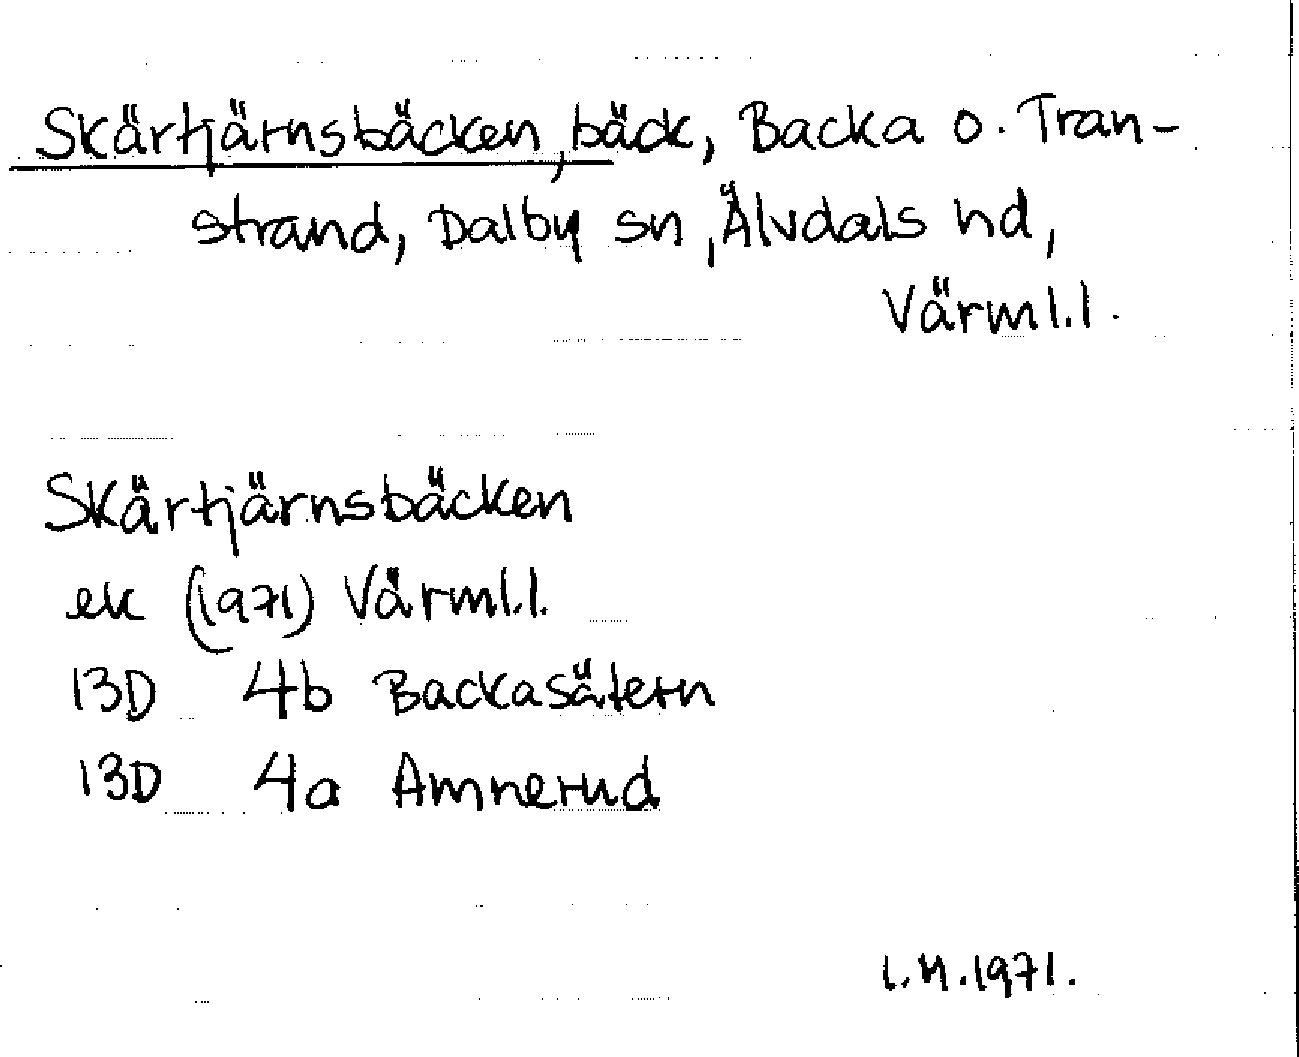 Skärtjärnsbäcken, bäck, Backa o. Tran-
strand, Dalby sn, Älvdals hd,
Värml.l.
Skärtjärnsbäcken
ek (1971) Värml.l.
13D 4b Backasätern
13D 4a Amnerud
I.H.1971.